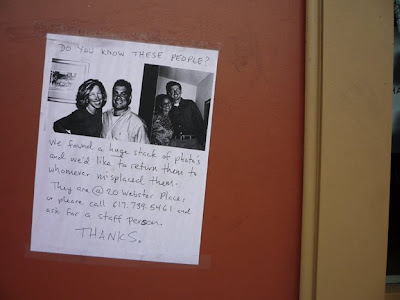 DO YOU KNOW THESE PEOPLE?
We found a huge stack of photo's
and we'd like to return them to
whomever misplaced them.
They are @ 20 Webster Place;
or please call 617.799.5461 and
ask for a staff person.
THANKS.